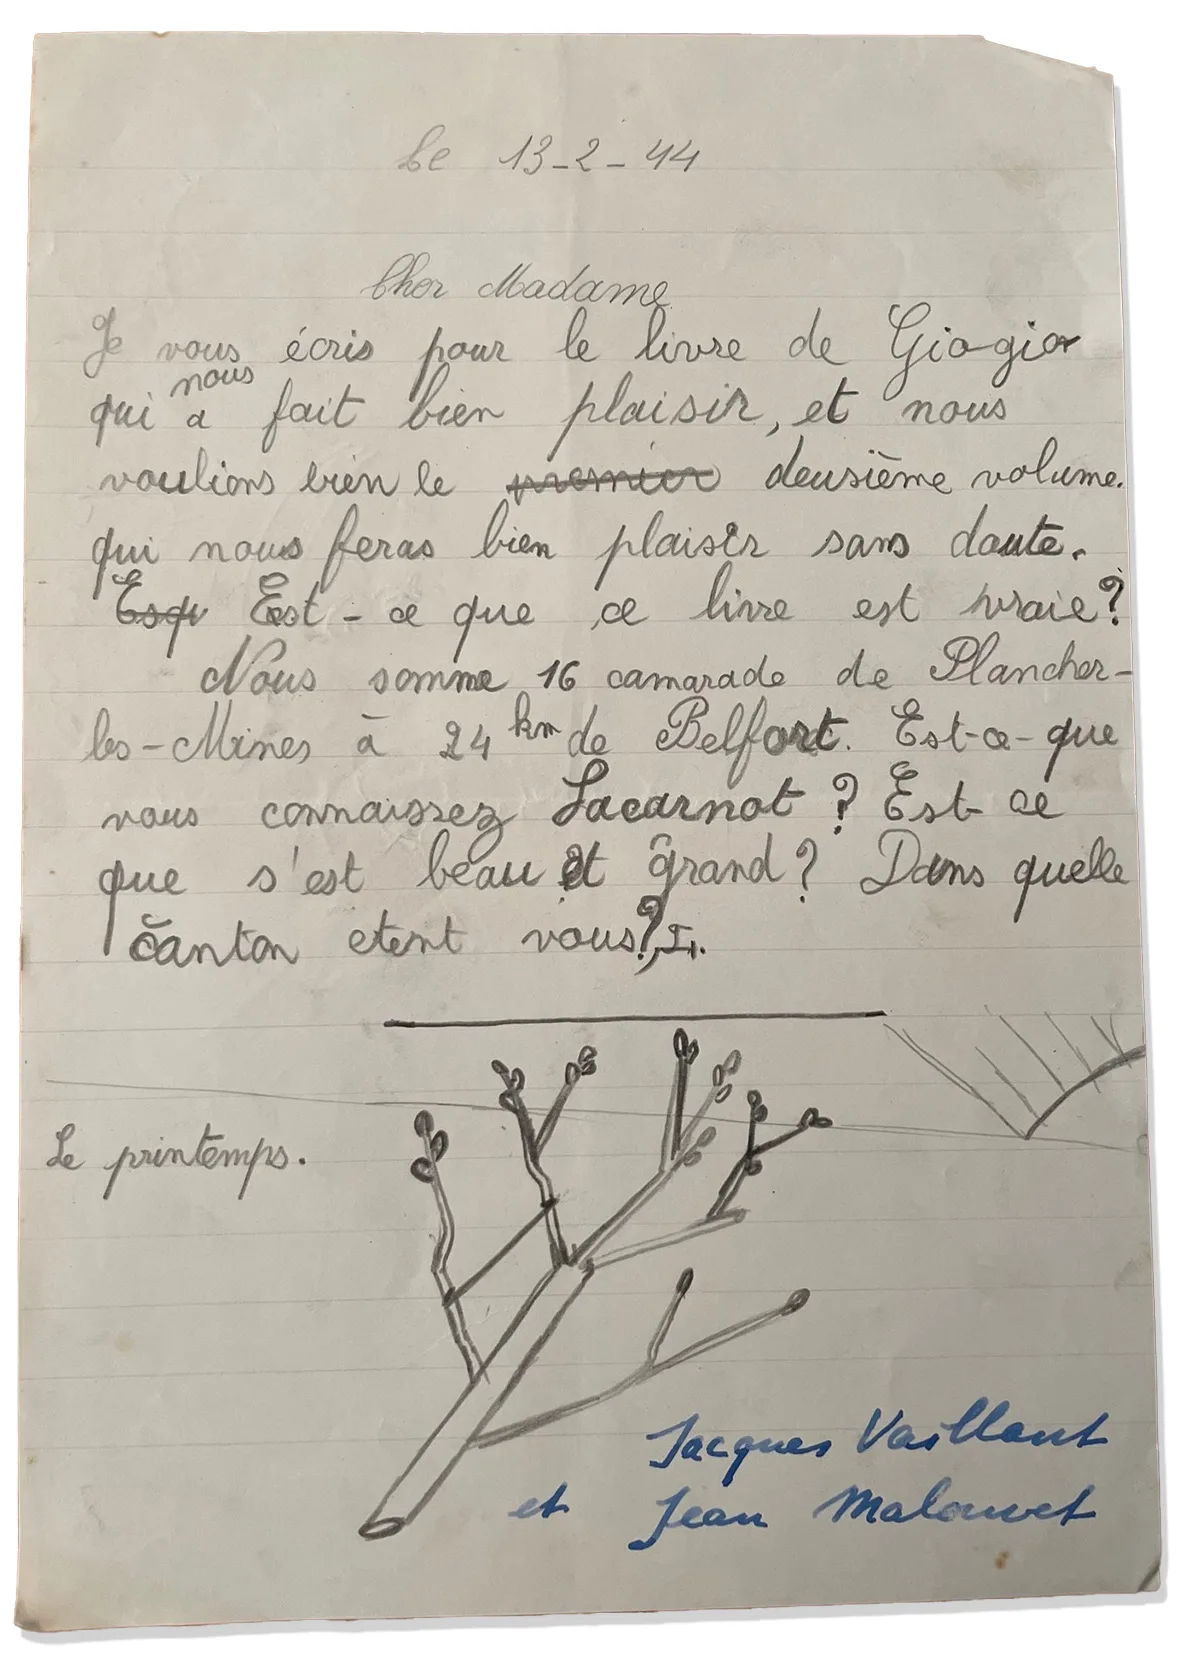 Le 13-2-44
Cher Madame
Je vous écris pour le livre de Giogio
nous
qui a fait bien plaisir, et nous
voulions bien le premier deusième volume.
qui nous feras bien plaisir sans doute.
Esqu Est-ce que ce livre est vraie?
Nous somme 16 camarade de Plancher-
les-Mines à 24 km de Belfort. Est-ce-que
vous connaissez Lacarnot? Est-ce
que s'est beau et grand? Dans quelle
canton etent vous?
Le printemps.
Jacques Vaillant
et Jean Malouvet